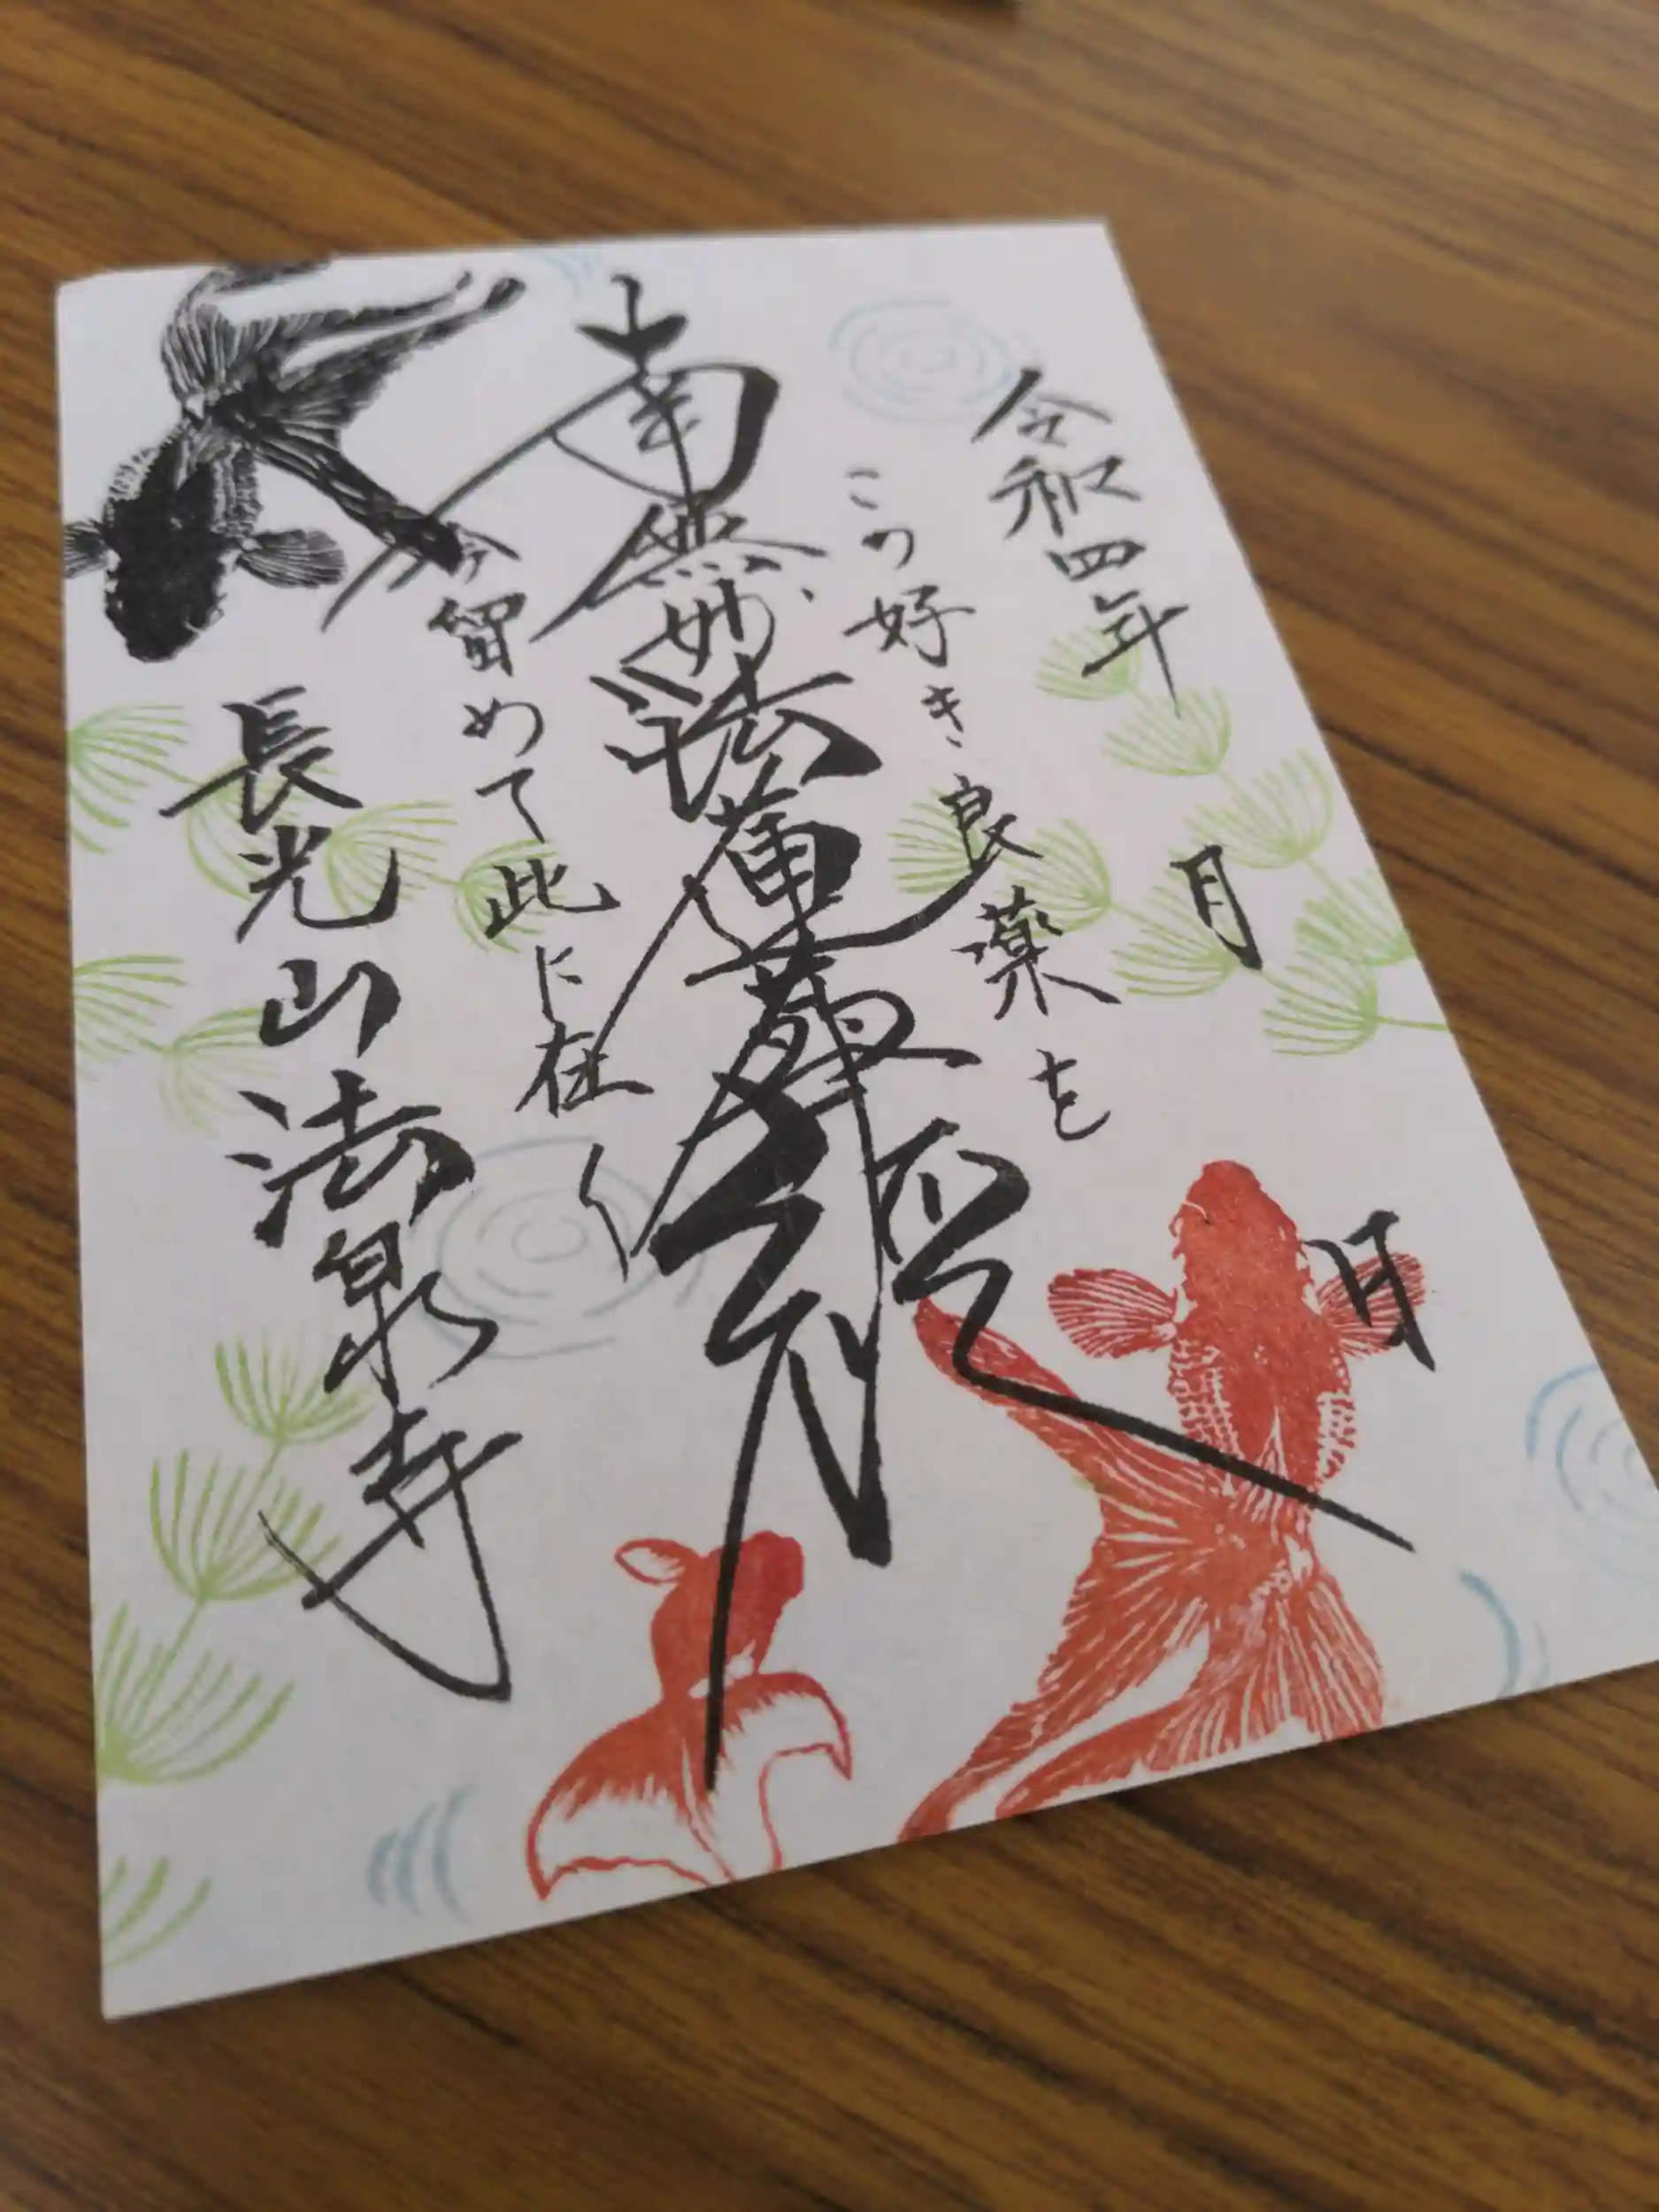 令和四年 月 日
この好き良薬を
南無妙法蓮華経
今留めて此に在く
長光山法泉寺